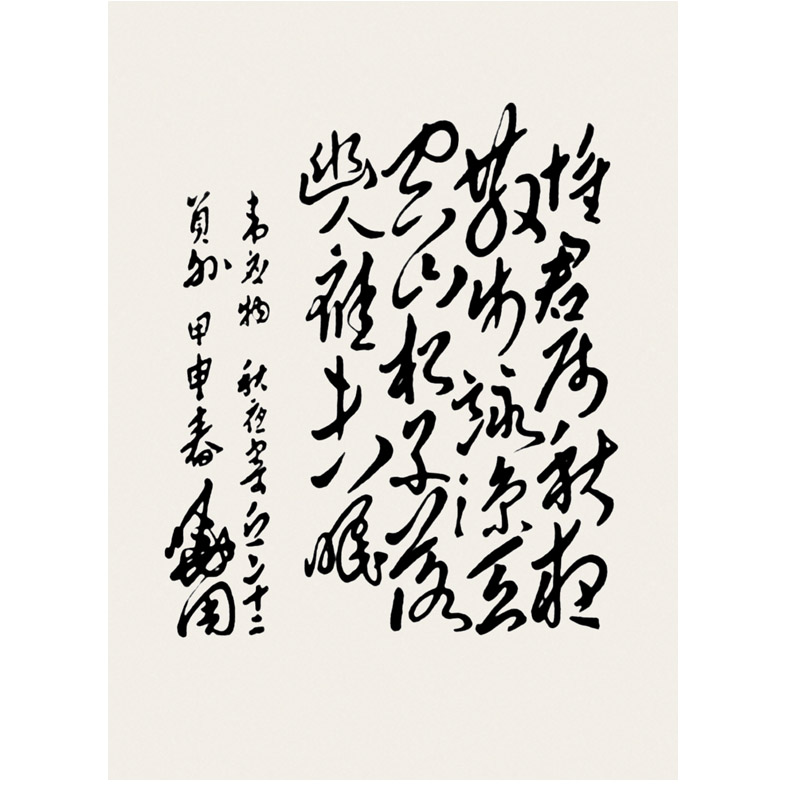 懷君属秋夜
散步詠涼天
空山松子落
幽人應未眠
韋應物 秋夜寄丘二十二
員外 甲申春